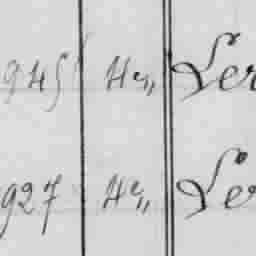 945 4e,, Ler
927 4e,, Ler